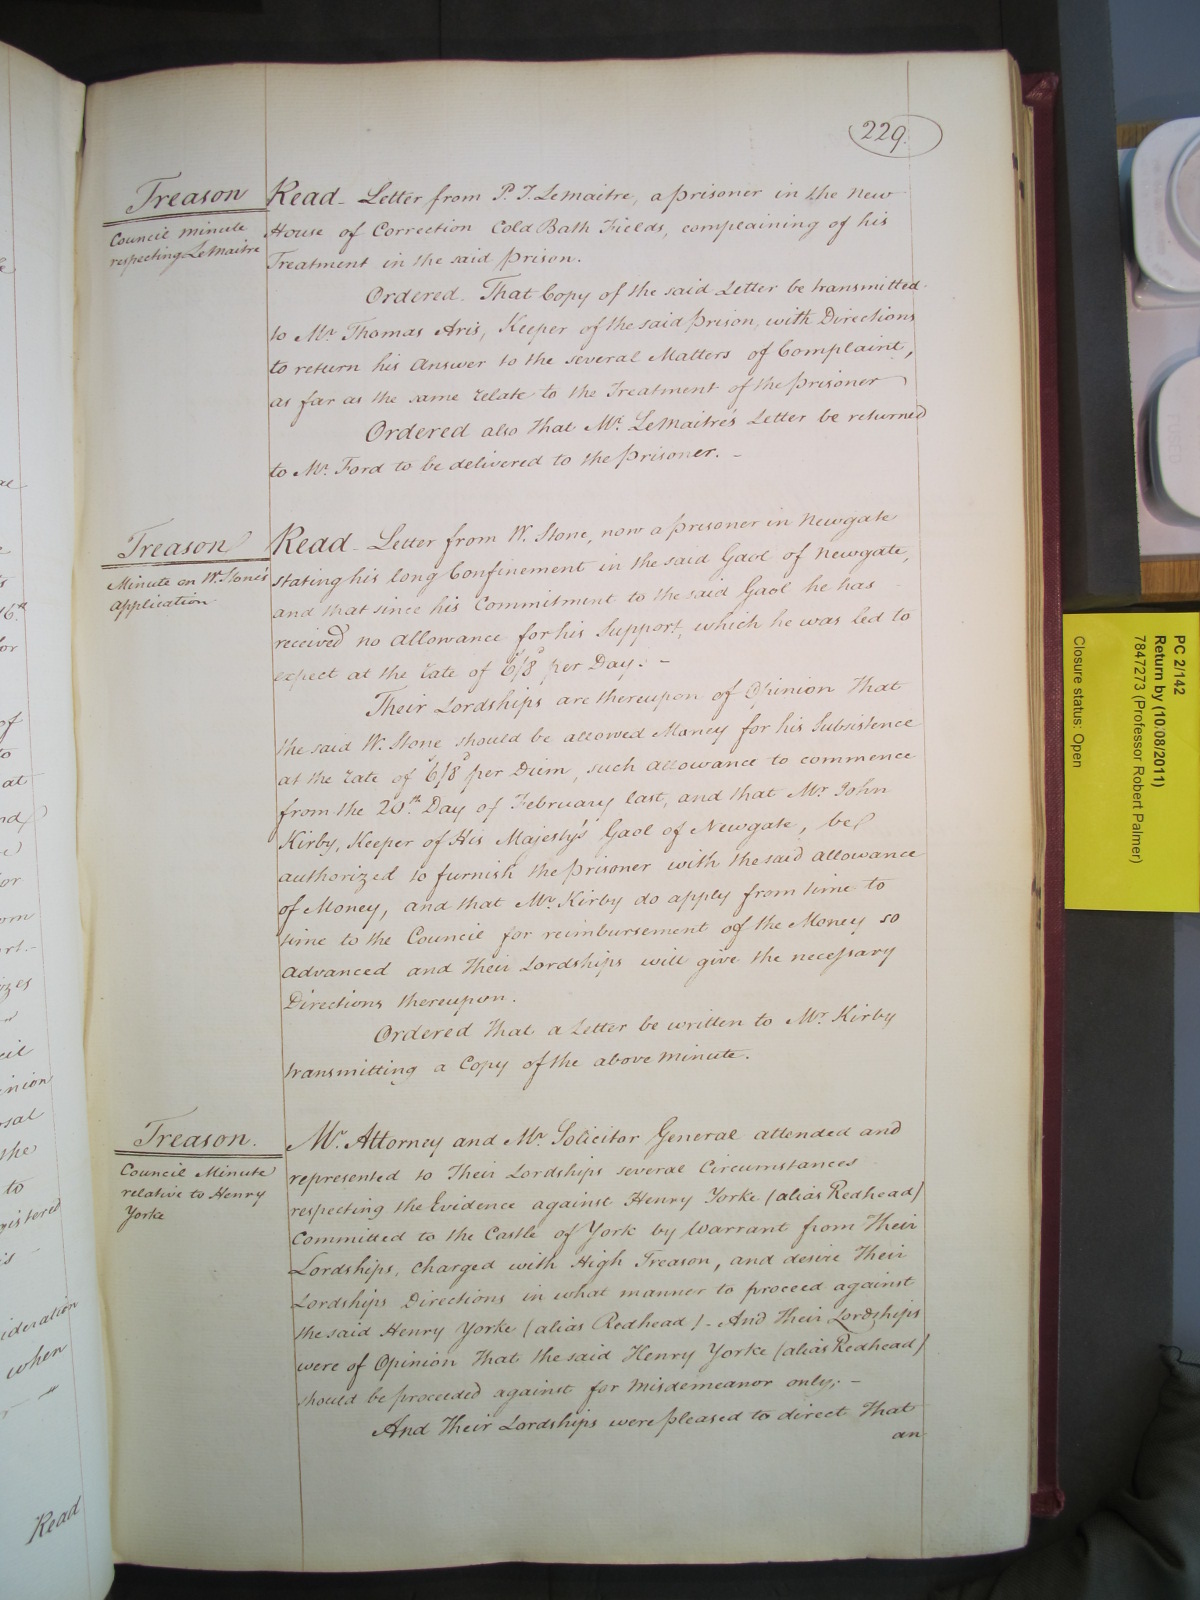 229.
Treason
Council minute
respecting LeMaitre
Read - Letter from P. T. Lemaitre, a prisoner in the New
House of Correction Cold Bath Fields, complaining of his
Treatment in the said prison.
Ordered. That Copy of the said Letter be transmitted
to Mr. Thomas Aris, Keeper of the said prison, with Directions
to return his Answer to the several Matters of Complaint,
as far as the same relate to the Treatment of the prisoner
Ordered also that Mr. LeMaitre's Letter be returned
to Mr. Ford to be delivered to the prisoner. -
Treason
Minute on W. Stone's
application.
Read - Letter from W. Stone, now a prisoner in Newgate
stating his long Confinement in the said Gaol of Newgate,
and that since his Commitment to the said Gaol he has
received no allowance for his Support, which he was led to
expect at the rate of 6s/8d per Day. -
Their Lordships are thereupon of Opinion that
the said W. Stone should be allowed Money for his Subsistence
at the rate of 6s/8d per Diem, such allowance to commence
from the 20th. Day of February last, and that Mr. John
Kirby, Keeper of His Majesty's Gaol of Newgate, be
authorized to furnish the prisoner with the said allowance
of Money, and that Mr. Kirby do apply from time to
time to the Council for reimbursement of the Money so
advanced and Their Lordships will give the necessary
Directions thereupon.
Ordered that a Letter be written to Mr. Kirby
transmitting a Copy of the above minute.
Treason.
Council Minute
relative to Henry
Yorke
Mr. Attorney and Mr. Solicitor General attended and
represented to Their Lordships several Circumstances
respecting the Evidence against Henry Yorke (alias Redhead)
Committed to the Castle of York by Warrant from Their
Lordships, charged with High Treason, and desire Their
Lordships Directions in what manner to proceed against
the said Henry Yorke (alias Redhead) - And Their Lordships
were of Opinion That the said Henry Yorke (alias Redhead)
should be proceeded against for misdemeanor only; -
And Their Lordships were pleased to direct That
an
Read
ideration
when
PC 2/142
Return by (10/08/2011)
7847273 (Professor Robert Palmer)
Closure status: Open